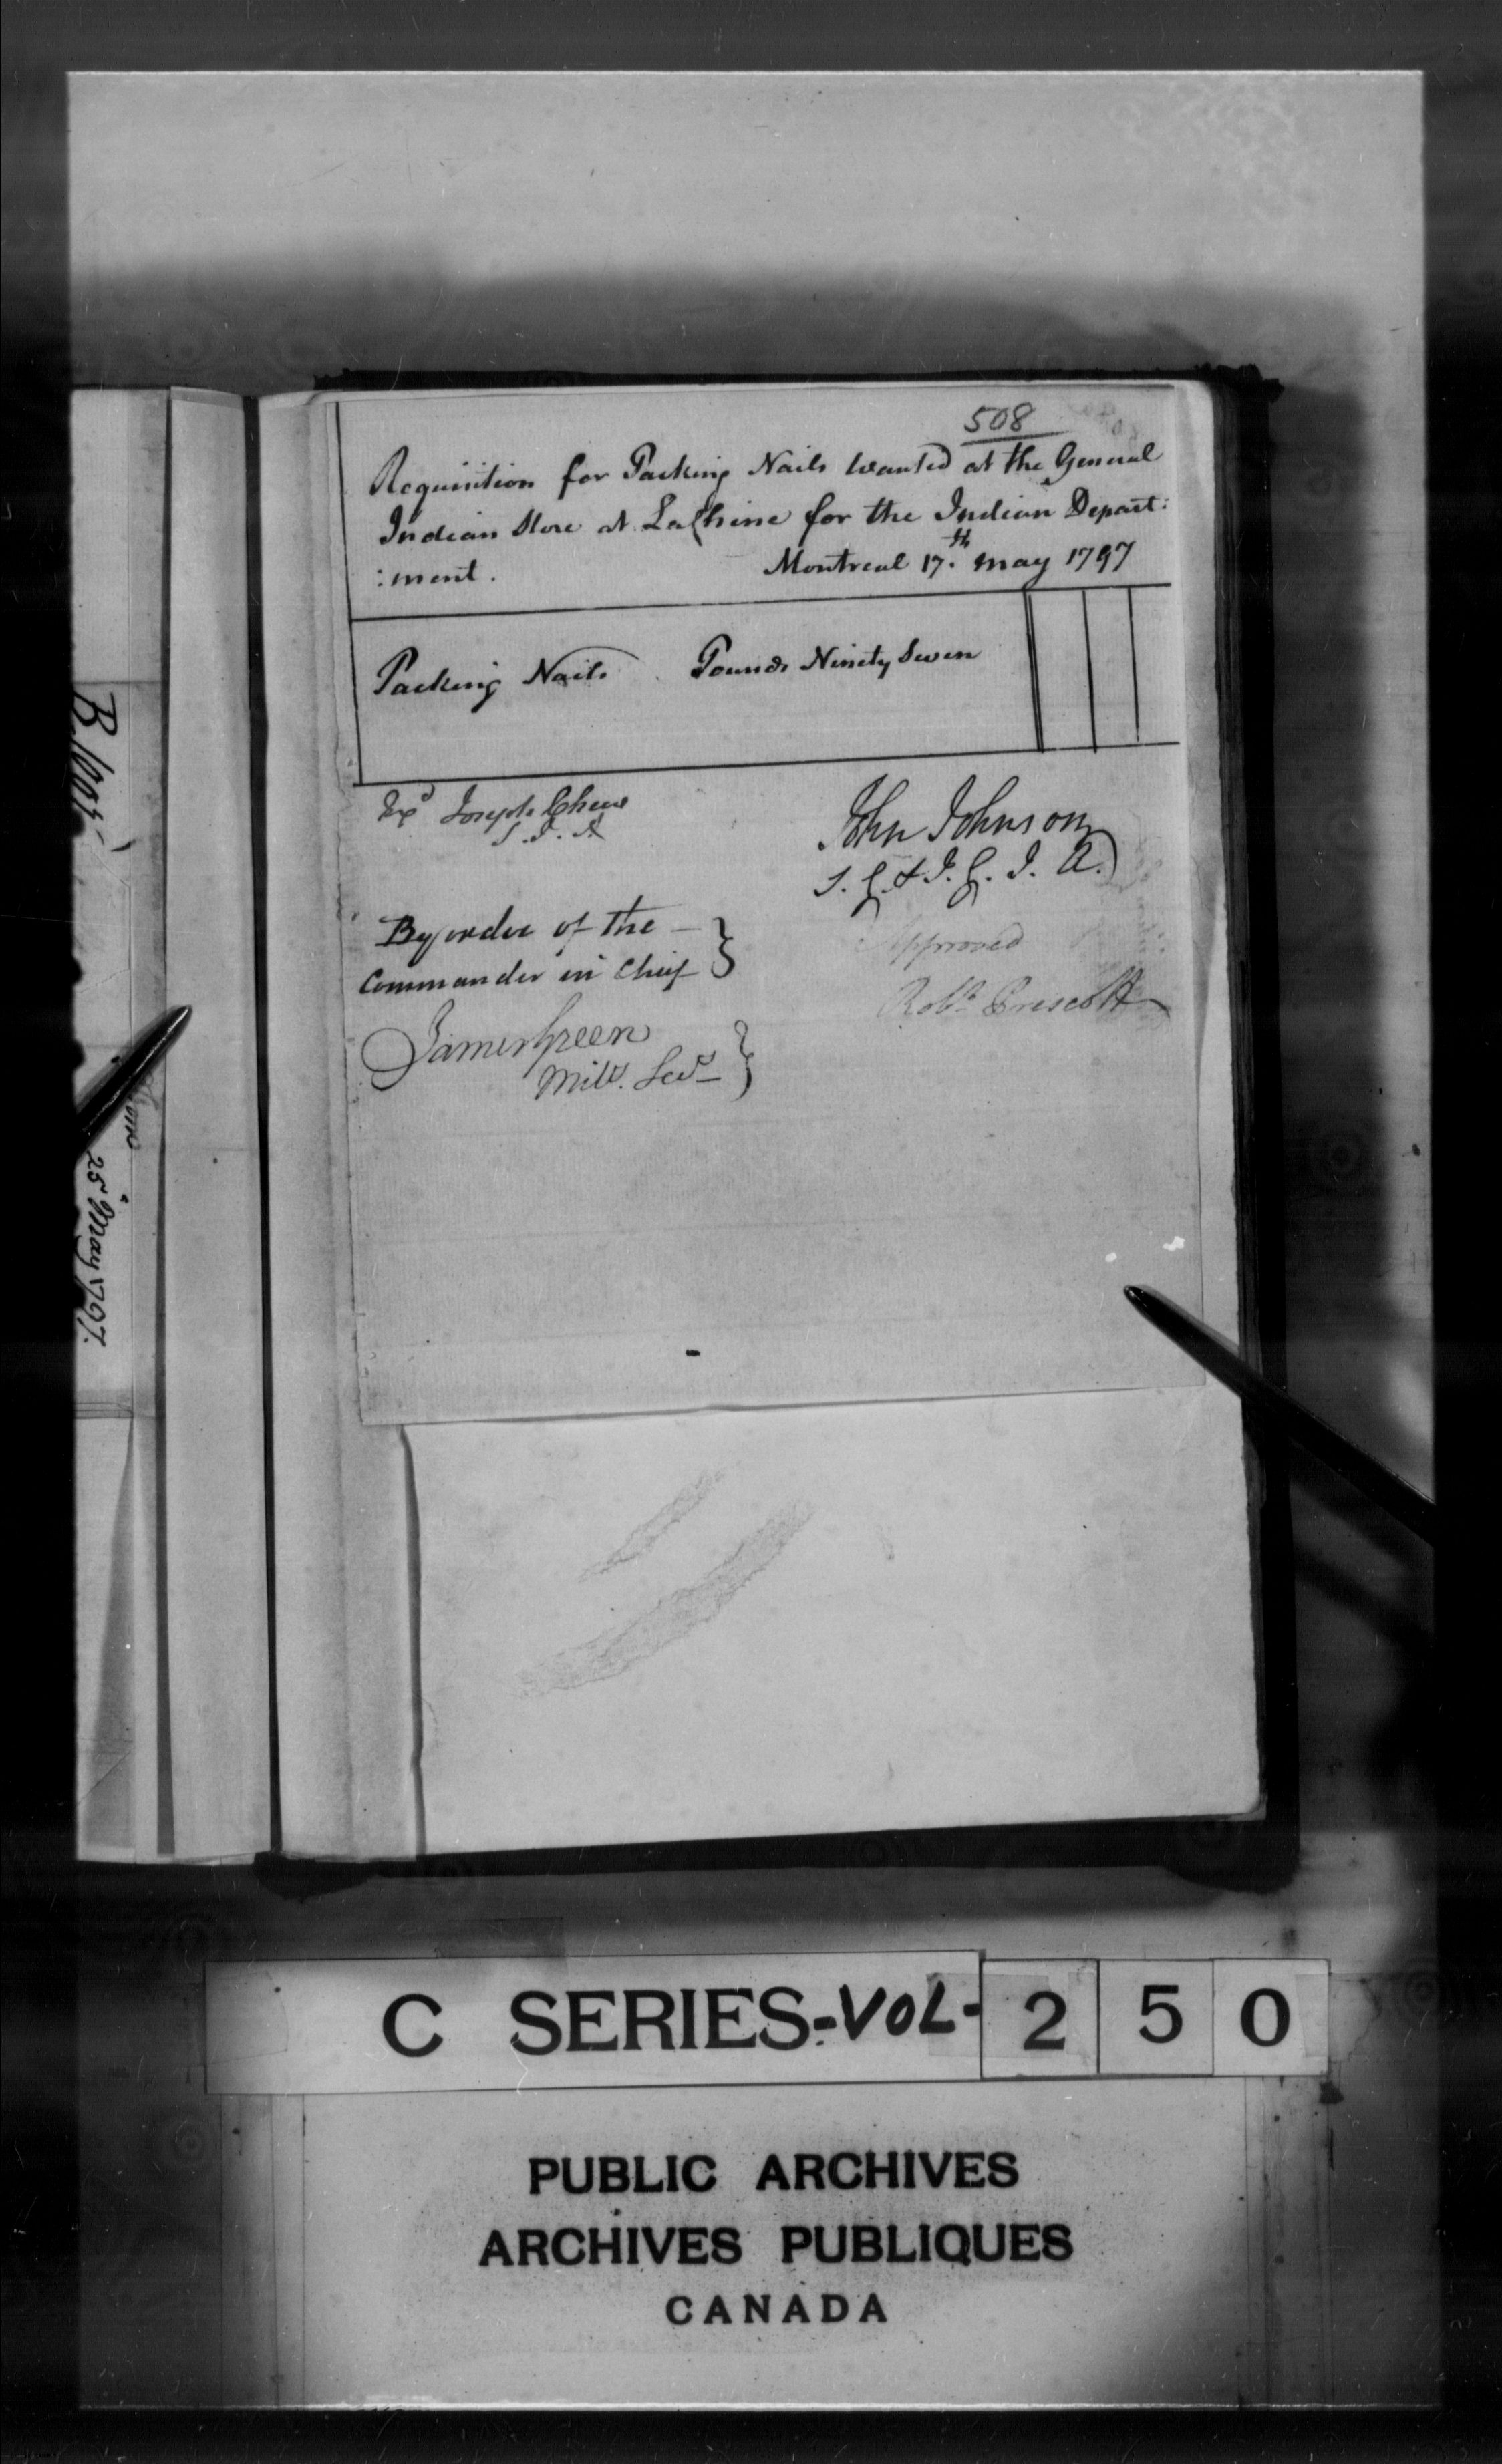 508
Requisition for Packing Nails Wanted at the General
Indian Store at LaChine for the Indian Depart:
:ment. Montreal 17.th May 1797
Packing Nails Pounds Ninety Seven
Exd Joseph Chew
S. I. A
John Johnson
S. G. & I. G. I. A.
By order of the
Commander in Chief
Approved
Robt Prescott
James Green
Mily. Secy
25 May 1797.
C SERIES-VOL-250
PUBLIC ARCHIVES
ARCHIVES PUBLIQUES
CANADA